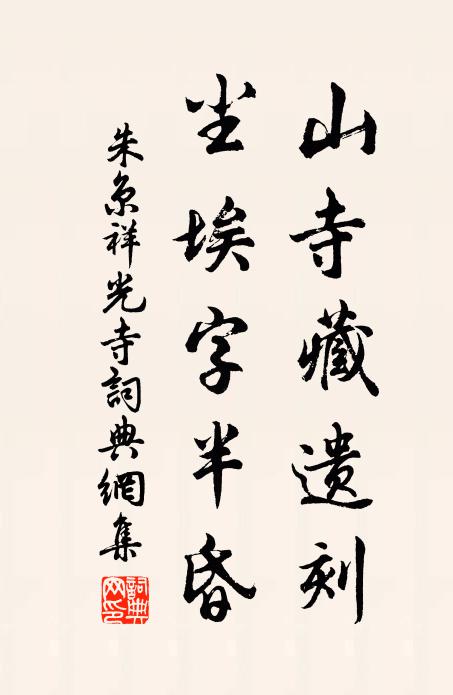 山寺藏遗刻
尘埃字半昏
朱京祥光寺詞典網集
詞典网印